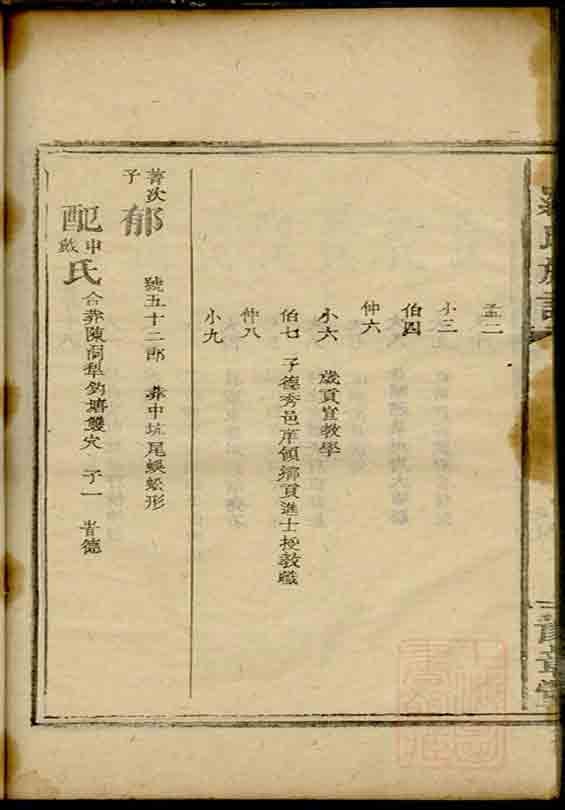 羅氏族譜
豫章堂
孟二
小三
伯四
仲六
小六 歲貢宣教學
伯七 子德秀邑庠領鄉貢進士授教職
仲八
小九
菁次子 郁 號五十二郎 葬中坑尾蜈蚣形
配 申 氏 合葬陳洞犁鈎塘雙穴 子一 德